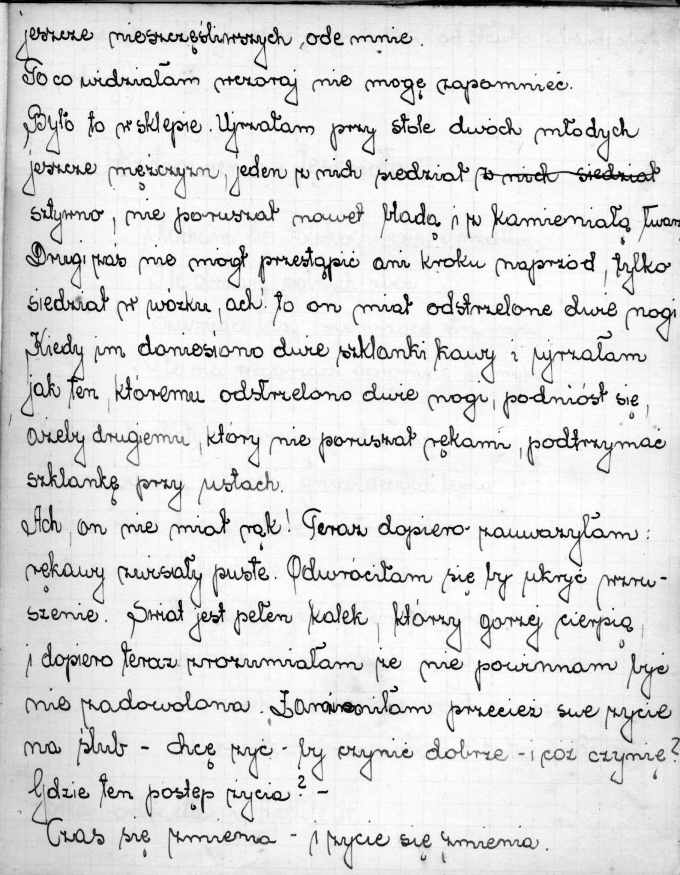 jeszcze nieszczęśliwszych, ode mnie.
To co widziałam wczoraj nie mogę zapomnieć.
Było to w sklepie. Ujrzałam przy stole dwóch młodych
jeszcze mężczyzn, jeden z nich siedział z nich siedział
sztywno, nie poruszał nawet bladą i z kamieniałą twarz
Drugi zaś nie mógł przestąpić ani kroku naprzód, tylko
siedział w wózku, ach. to on miał odstrzelone dwie nogi
Kiedy im doniesiono dwie szklanki kawy i ujrzałam
jak ten, któremu odstrzelono dwie nogi, podniósł się,
ażeby drugiemu, który nie poruszał rękami, podtrzymać
szklankę przy ustach.
Ach, on nie miał rąk! Teraz dopiero zauważyłam:
rękawy zwisały puste. Odwróciłam się by ukryć wzru-
szenie. Świat jest pełen kalek, którzy gorzej cierpią,
i dopiero teraz zrozumiałam że nie powinnam być
nie zadowolona. przecież swe życie
na ślub - chcę żyć - by czynić dobrze - i cóż czynię?
Gdzie ten postęp życia? -
Czas się zmienia - i życie się zmienia.